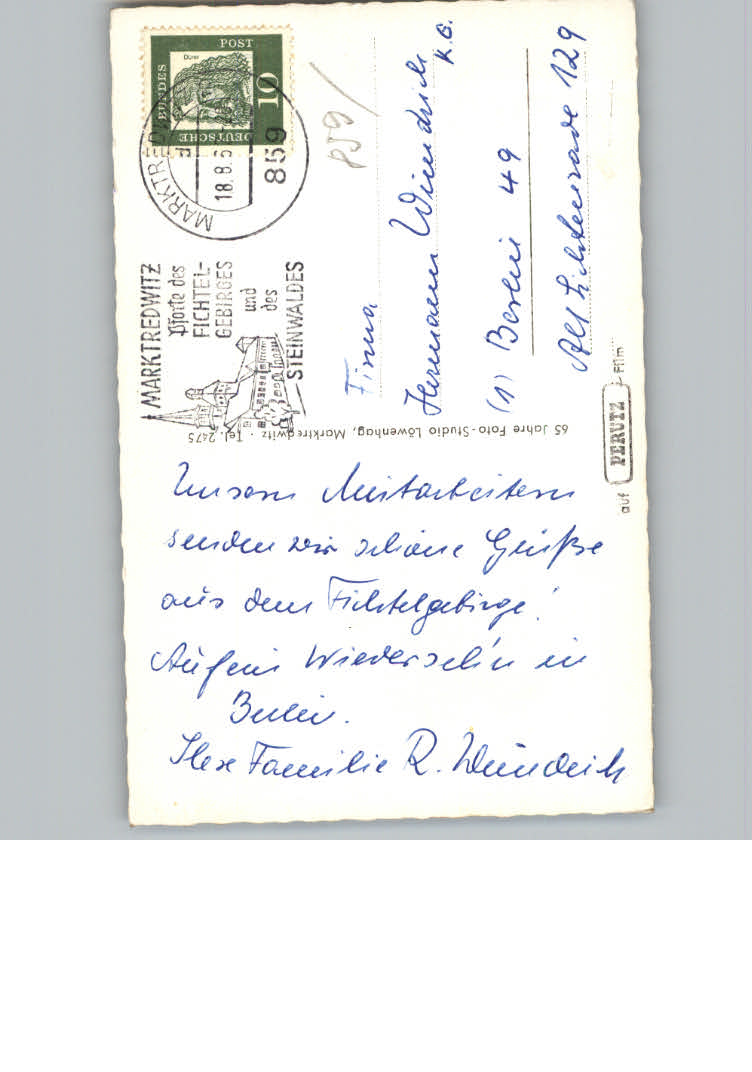 Unsern Mitarbeitern
senden wir schöne Grüße
aus dem Fichtelgebirge!
Auf ein Wiederseh'n in
Berlin.
Ihre Familie R. Wündrich
Firma
Hermann Wündrich
K.G.
(1) Berlin 49
Alt Lichtenrade 129
859
DEUTSCHE BUNDESPOST
Dürer
10
MARKTREDWITZ
18.8.6
859
MARKTREDWITZ
Pforte des
FICHTEL-
GEBIRGES
und
des
STEINWALDES
65 Jahre Foto-Studio Löwenhag, Marktredwitz · Tel. 2475
auf PERUTZ-Film